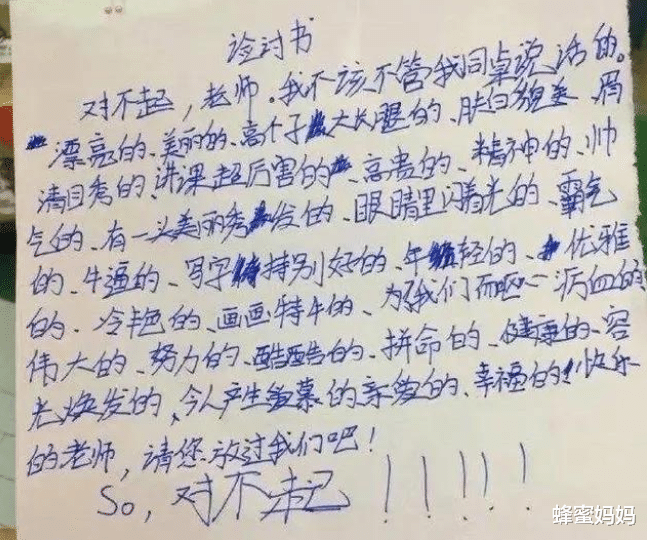 检讨书
对不起，老师。我不该不管我同桌说话的。
漂亮的、美丽的、高个子大长腿的、肤白貌美、眉
清目秀的、讲课超厉害的、高贵的、精神的、帅
气的、有一头美丽秀发的、眼睛里闪着光的、霸气
的、牛逼的、写字特别好的、年轻的、优雅
的、冷艳的、画画特牛的、为了我们而呕心沥血的
伟大的、努力的、酷酷的、拼命的、健康的、容
光焕发的、令人产生羡慕的亲爱的、幸福的快乐
的老师，请您放过我们吧！
So，对不起！！！！！
蜂蜜妈妈